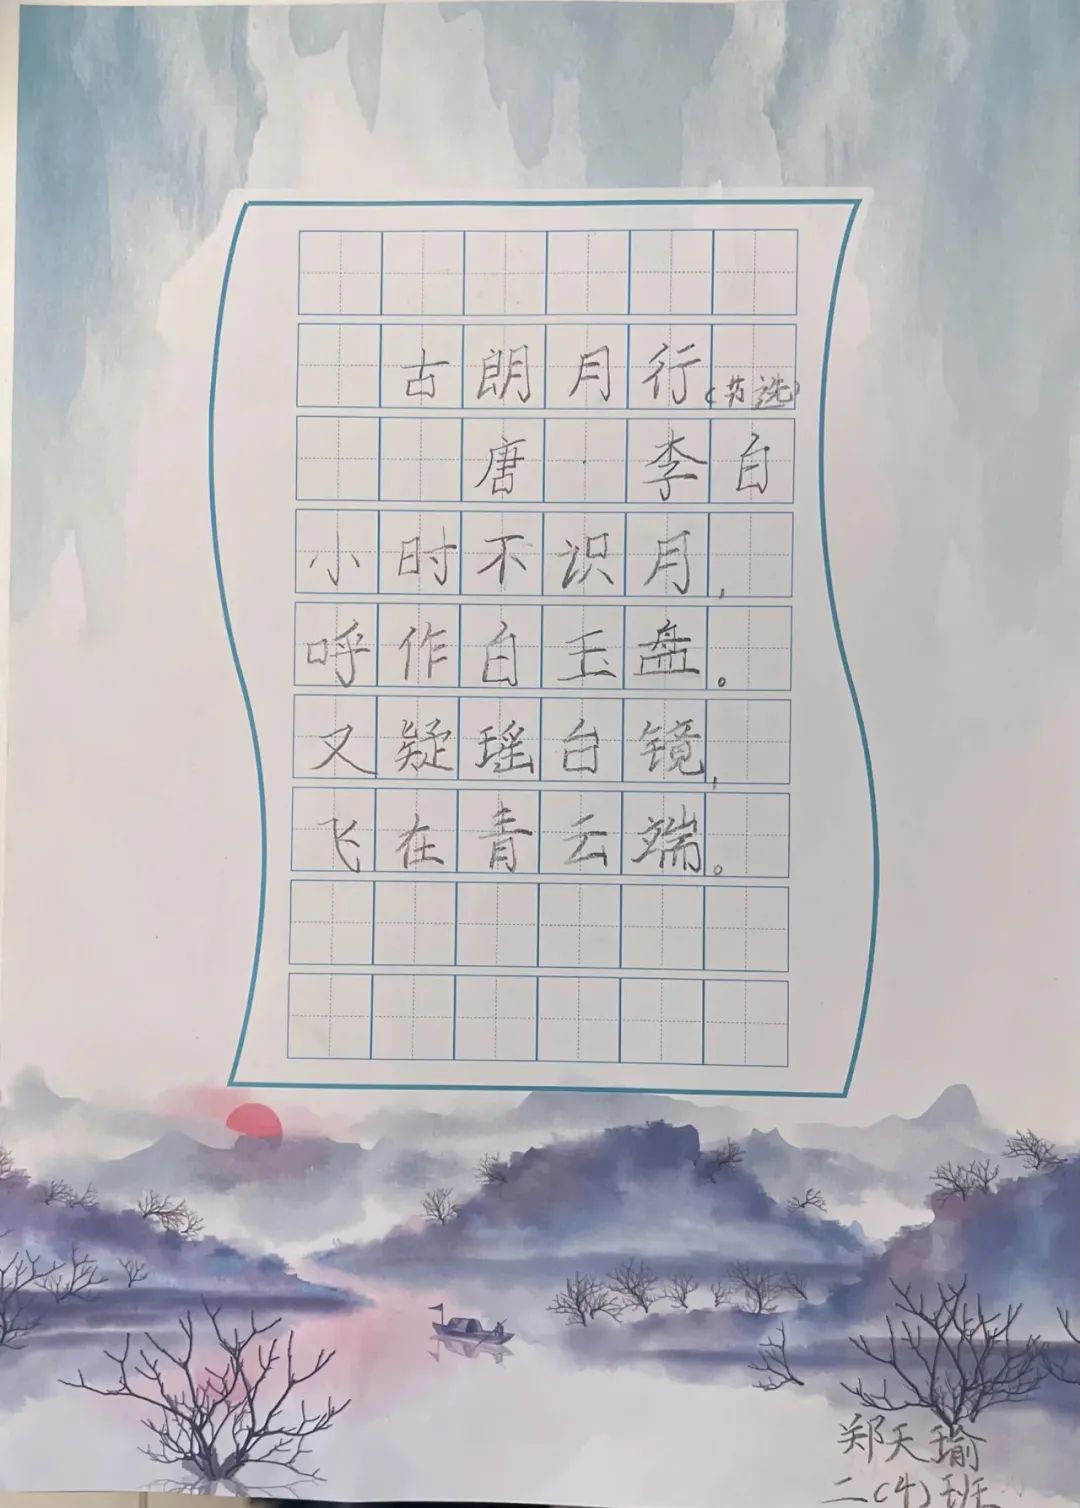 古朗月行(节选)
唐·李白
小时不识月,
呼作白玉盘。
又疑瑶台镜,
飞在青云端。
郑天瑜
二(4)班